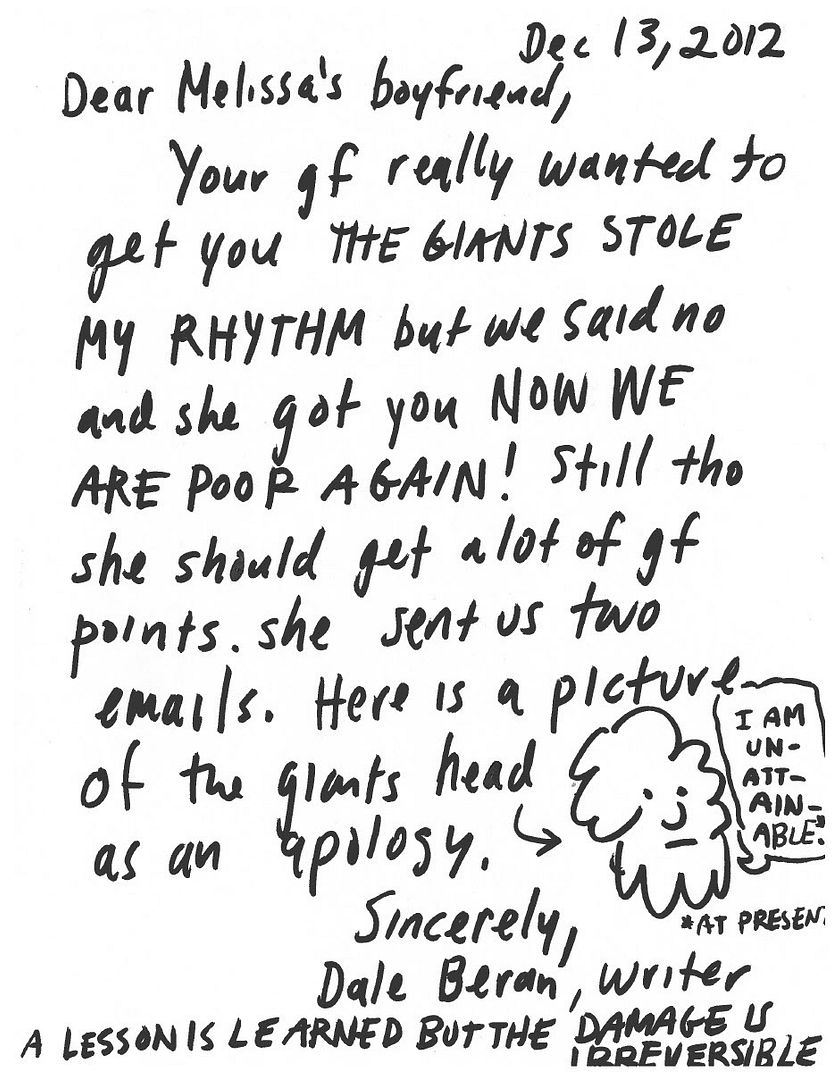 Dec 13, 2012
Dear Melissa's boyfriend,
Your gf really wanted to
get you THE GIANTS STOLE
MY RHYTHM but we said no
and she got you NOW WE
ARE POOR AGAIN! Still tho
she should get alot of gf
points. she sent us two
emails. Here is a picture
of the giants head
as an apology.
I AM
UN-
ATT-
AIN-
ABLE.*
*AT PRESENT
Sincerely,
Dale Beran, writer
A LESSON IS LEARNED BUT THE DAMAGE IS
IRREVERSIBLE